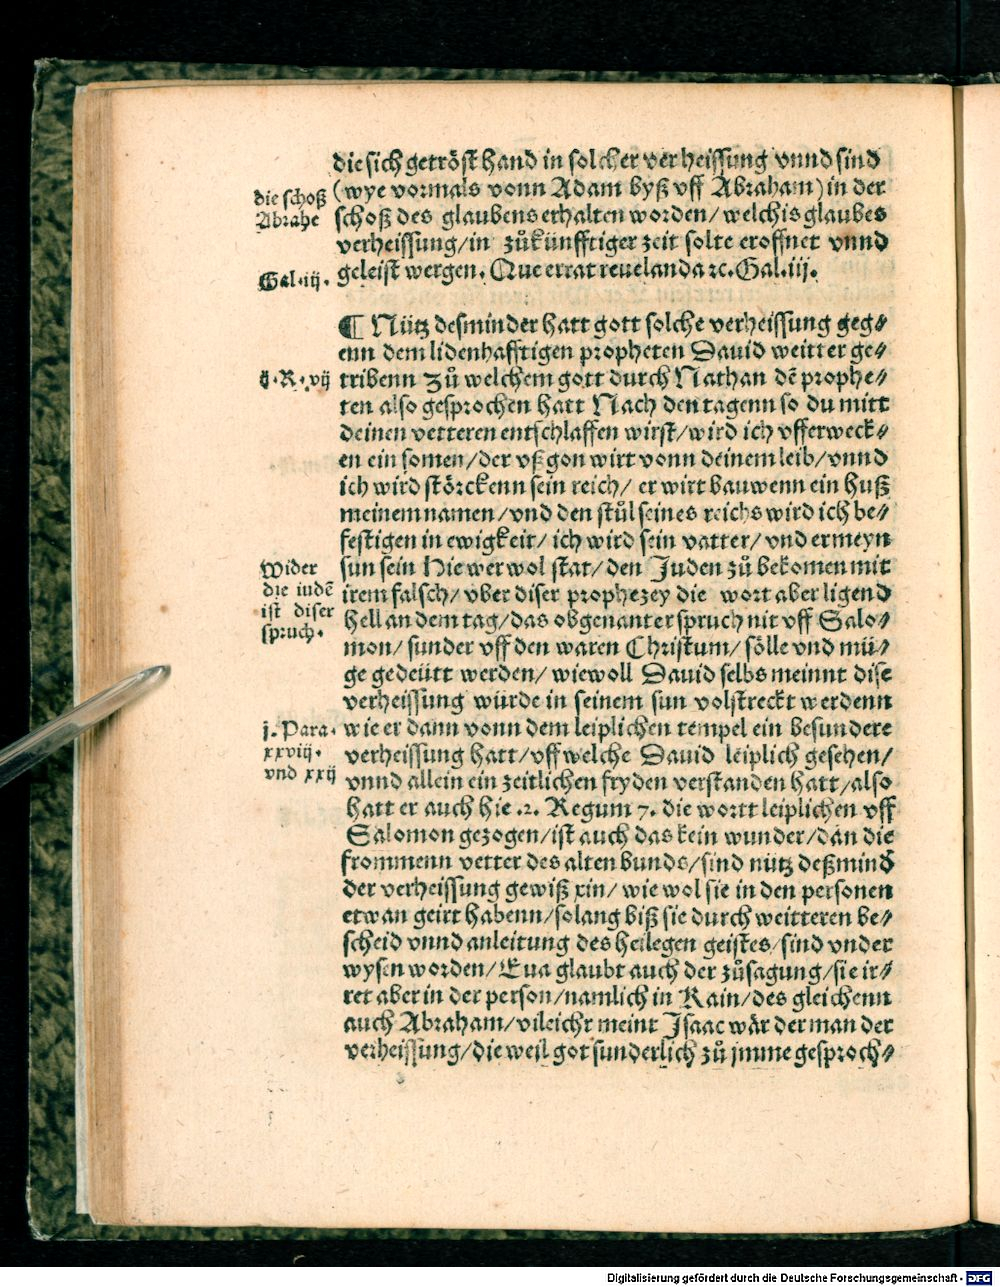 die sich getröst hand in solcher verheissung vnnd sind
die schoß
Abrahe
(wye vormals vonn Adam byß vff Abraham) in der
schoß des glaubens erhalten worden/ welchis glaubes
verheissung/ in zůkünfftiger zeit solte eroffnet vnnd
Gal.iij.
geleist wergen. Que errat reuelanda ꝛc. Gal.iii.
¶ Nütz desminder hatt gott solche verheissung geg⸗
enn dem lidenhafftigen propheten Dauid weitter ge⸗
ij.R.vij
tribenn Zů welchem gott durch Nathan dē prophe⸗
ten also gesprochen hatt Nach den tagenn so du mitt
deinen vetteren entschlaffen wirst/ wird ich vfferweck⸗
en ein somen/ der vß gon wirt vonn deinem leib/ vnnd
ich wird störckenn sein reich/ er wirt bauwenn ein huß
meinem namen/ vnd den stůl seines reichs wird ich be⸗
festigen in ewigkeit/ ich wird sein vatter/ vnd er meyn
Wider
die iudē
ist diser
spruch.
sun sein Hie wer wol stat/ den Juden zů bekomen mit
irem falsch/ vber diser prophezey die wort aber ligend
hell an dem tag/ das obgenanter spruch nit vff Salo⸗
mon/ sunder vff den waren Christum/ sölle vnd mü⸗
ge gedeütt werden/ wiewoll Dauid selbs meinnt dise
verheissung würde in seinem sun volstreckt werdenn
j. Para.
xxviij.
vnd xxij
wie er dann vonn dem leiplichen tempel ein besundere
verheissung hatt/ vff welche Dauid leiplich gesehen/
vnnd allein ein zeitlichen fryden verstanden hatt/ also
hatt er auch hie .2. Regum 7. die wortt leiplichen vff
Salomon gezogen/ ist auch das kein wunder/ dan die
frommenn vetter des alten bunds/ sind nütz deßmind
der verheissung gewiß xin/ wie wol sie in den personen
etwan geirt habenn/ solang biß sie durch weitteren be⸗
scheid vnnd anleitung des heilegen geistes/ sind vnder
wysen worden/ Eua glaubt auch der zůsagung/ sie ir⸗
ret aber in der person/ namlich in Kain/ des gleichenn
auch Abraham/ vileichr meint Isaac wär der man der
verheissung/ die weil got sunderlich zů jmme gesproch⸗
Digitalisierung gefördert durch die Deutsche Forschungsgemeinschaft - DFG